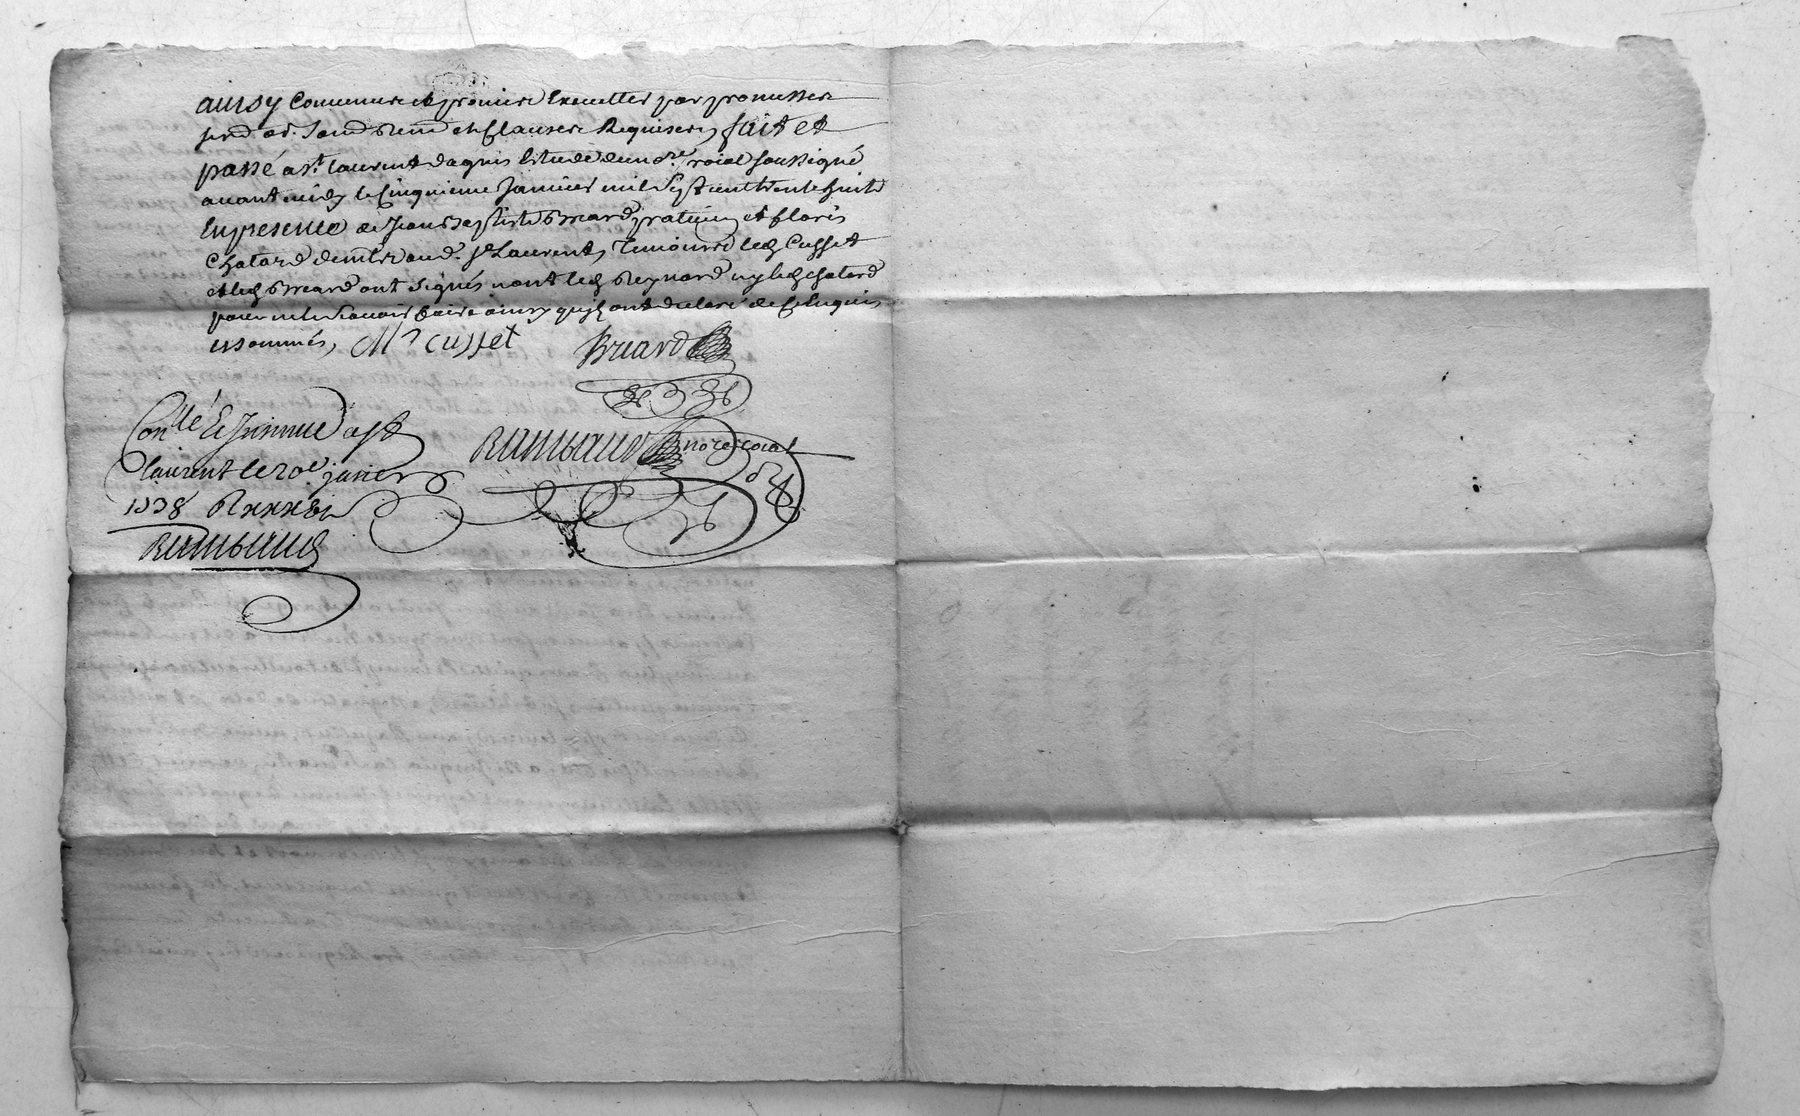 ainsy convenu et promis executter par promesses
et Clauses Requises, fait et
passé a st. laurent dagnis Estude du nore. roial soussigné
avant midy le Cinquieme Janvier mil Sept cent trente huit
En presence de Jean Baptiste Breard praticien et floris
Chatard demtr. aud. st Laurent, Temoins led Cusset
et led Breard ont signés non led Reynard ny led chatard
pour ne le scavoir faire ainsy quils ont declaré de ce Enquis
et sommés, Mr cusset
Breard
Conllé Et Insinué a st
laurent le 20e. janier
1738 R
Rimbaud
Rimbaud nore roial